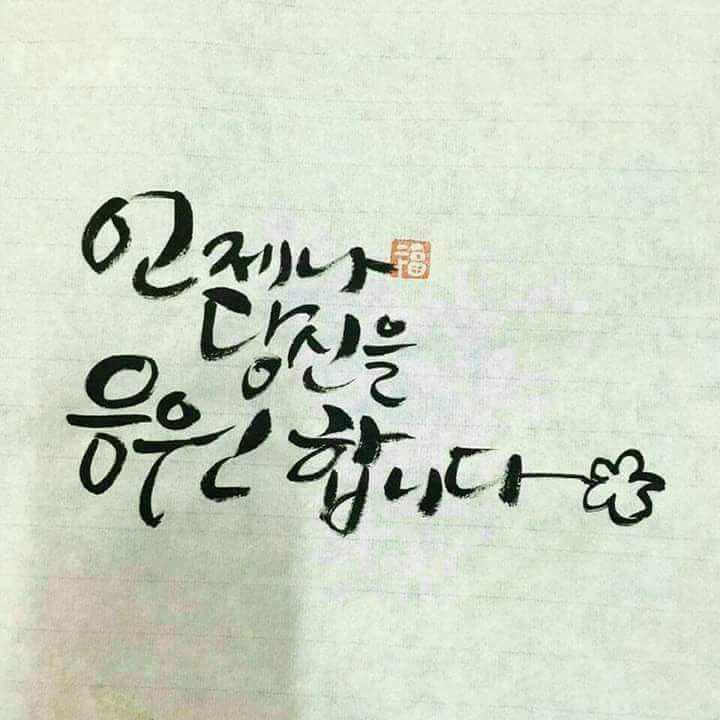 언제나 福
당신을
응원합니다